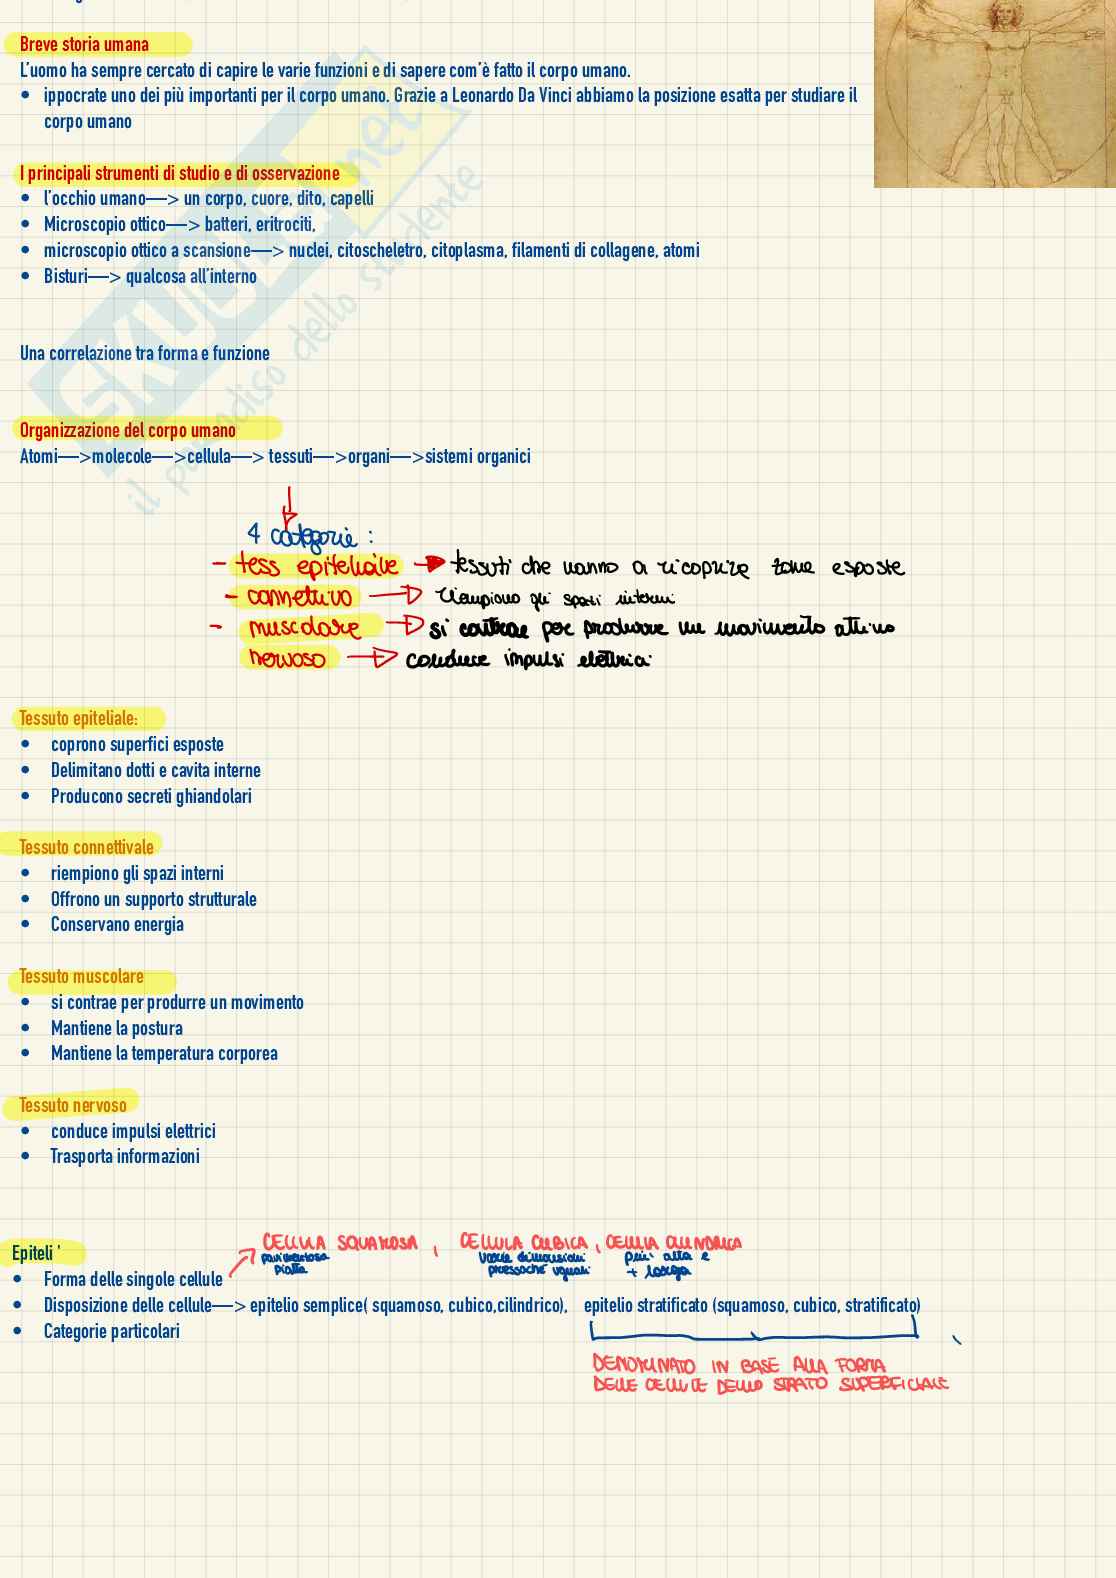 Breve storia umana
L'uomo ha sempre cercato di capire le varie funzioni e di sapere com'è fatto il corpo umano.
• ippocrate uno dei più importanti per il corpo umano. Grazie a Leonardo Da Vinci abbiamo la posizione esatta per studiare il
corpo umano
I principali strumenti di studio e di osservazione
• l'occhio umano—> un corpo, cuore, dito, capelli
• Microscopio ottico—> batteri, eritrociti,
• microscopio ottico a scansione—> nuclei, citoscheletro, citoplasma, filamenti di collagene, atomi
• Bisturi—> qualcosa all'interno
Una correlazione tra forma e funzione
Organizzazione del corpo umano
Atomi—>molecole—>cellula—> tessuti—>organi—>sistemi organici
SKUOLA.net
il paradiso dello studente
4 categorie :
- tess epiteliale → tessuti che vanno a ricoprire zone esposte
- connettivo → riempiono gli spazi interni
- muscolare → si contrae per produrre un movimento attivo
nervoso → conduce impulsi elettrici
Tessuto epiteliale:
• coprono superfici esposte
• Delimitano dotti e cavita interne
• Producono secreti ghiandolari
Tessuto connettivale
• riempiono gli spazi interni
• Offrono un supporto strutturale
• Conservano energia
Tessuto muscolare
• si contrae per produrre un movimento
• Mantiene la postura
• Mantiene la temperatura corporea
Tessuto nervoso
• conduce impulsi elettrici
• Trasporta informazioni
CELLULA SQUAMOSA , CELLULA CUBICA , CELLULA CILINDRICA
Epiteli '
pavimentosa varie dimensioni più alta e
piatta pressoché uguali + larga
• Forma delle singole cellule
• Disposizione delle cellule—> epitelio semplice( squamoso, cubico,cilindrico), epitelio stratificato (squamoso, cubico, stratificato)
• Categorie particolari
DENOMINATO IN BASE ALLA FORMA
DELLE CELLULE DELLO STRATO SUPERFICIALE